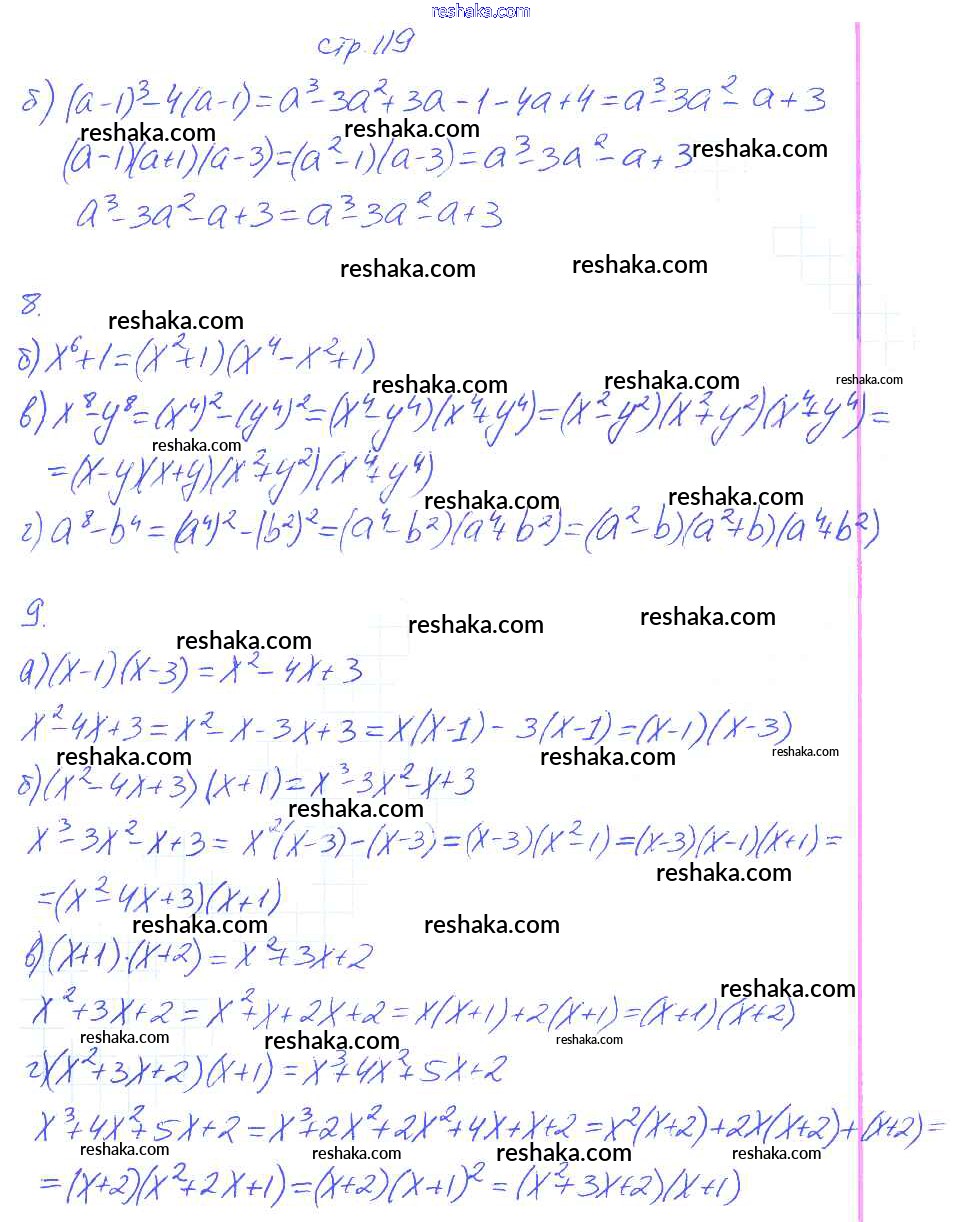 reshaka.com
стр. 119
б) (a-1)³-4(a-1)=a³-3a²+3a-1-4a+4=a³-3a²-a+3
reshaka.com reshaka.com reshaka.com
(a-1)(a+1)(a-3)=(a²-1)(a-3)=a³-3a²-a+3
a³-3a²-a+3=a³-3a²-a+3
reshaka.com reshaka.com
8.
reshaka.com
б) x⁶+1=(x²+1)(x⁴-x²+1)
reshaka.com reshaka.com reshaka.com
в) x⁸-y⁸=(x⁴)²-(y⁴)²=(x⁴-y⁴)(x⁴+y⁴)=(x²-y²)(x²+y²)(x⁴+y⁴)=
reshaka.com
=(x-y)(x+y)(x²+y²)(x⁴+y⁴)
reshaka.com reshaka.com
г) a⁸-b⁴=(a⁴)²-(b²)²=(a⁴-b²)(a⁴+b²)=(a²-b)(a²+b)(a⁴+b²)
9.
reshaka.com reshaka.com reshaka.com
а) (x-1)(x-3)=x²-4x+3
x²-4x+3=x²-x-3x+3=x(x-1)-3(x-1)=(x-1)(x-3)
reshaka.com reshaka.com reshaka.com
б) (x²-4x+3)(x+1)=x³-3x²-x+3
reshaka.com
x³-3x²-x+3=x²(x-3)-(x-3)=(x-3)(x²-1)=(x-3)(x-1)(x+1)=
reshaka.com
=(x²-4x+3)(x+1)
reshaka.com reshaka.com
в) (x+1)·(x+2)=x²+3x+2
reshaka.com
x²+3x+2=x²+x+2x+2=x(x+1)+2(x+1)=(x+1)(x+2)
reshaka.com reshaka.com reshaka.com
г) (x²+3x+2)(x+1)=x³+4x²+5x+2
x³+4x²+5x+2=x³+2x²+2x²+4x+x+2=x²(x+2)+2x(x+2)+(x+2)=
reshaka.com reshaka.com reshaka.com reshaka.com
=(x+2)(x²+2x+1)=(x+2)(x+1)²=(x²+3x+2)(x+1)